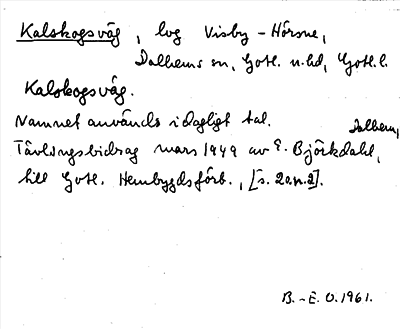 Kalskogsväg, lvg Visby - Hörsne,
Dalhems sn, Gotl. n. hd, Gotl. l.
Kalskogsväg.
Namnet används i dagligt tal.
Tävlingsbidrag mars 1949 av E. Björkdahl, Dalhem,
till Gotl. Hembygdsförb., [s. 20. n. 2].
B.-E. O. 1961.